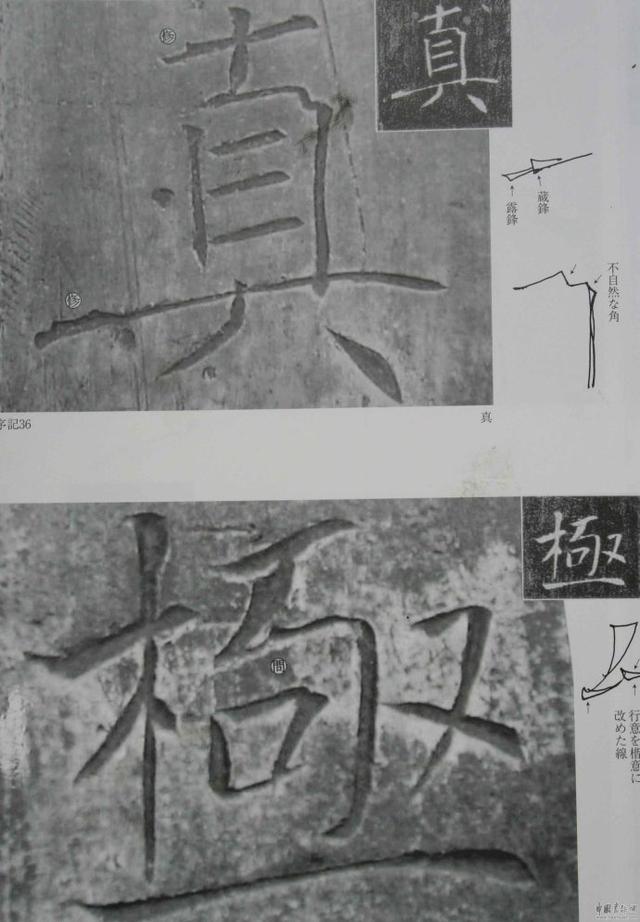 修
真
真
蔵鋒
露鋒
不自然な角
修
序記36
真
極
極
間
行意を楷意に
改めた線